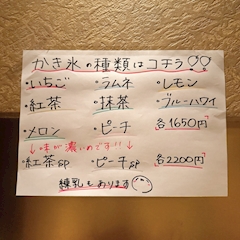 かき氷の種類はコチラ!!
・いちご ・ラムネ ・レモン
・紅茶 ・抹茶 ・ブルーハワイ
・メロン ・ピーチ 各1650円
↓味が濃いのです!!↓
・紅茶SP ・ピーチSP 各2200円
練乳もあります